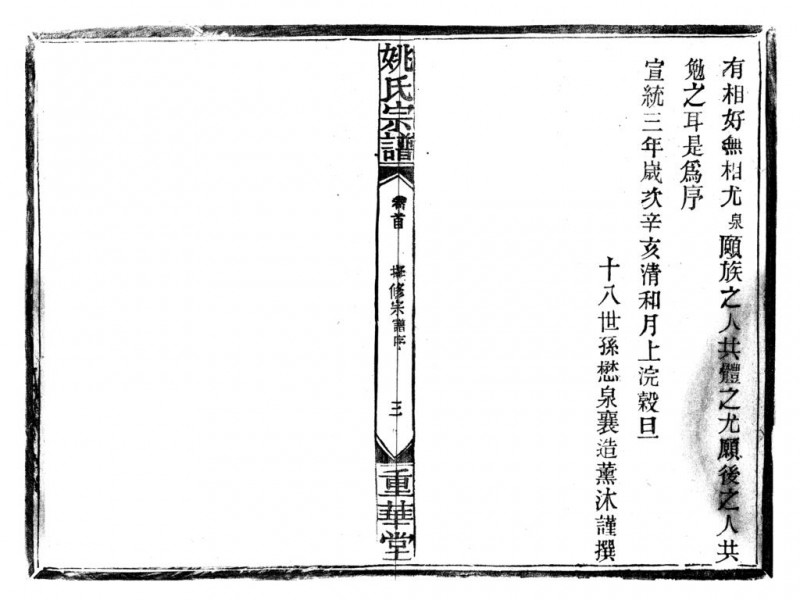 有相好無相尤泉願族之人共體之尤願後之人共
勉之耳是爲序
宣統三年歲次辛亥清和月上浣穀旦
十八世孫懋泉襄造薰沐謹撰
姚氏宗譜
卷首
修宗譜序
三
重華堂